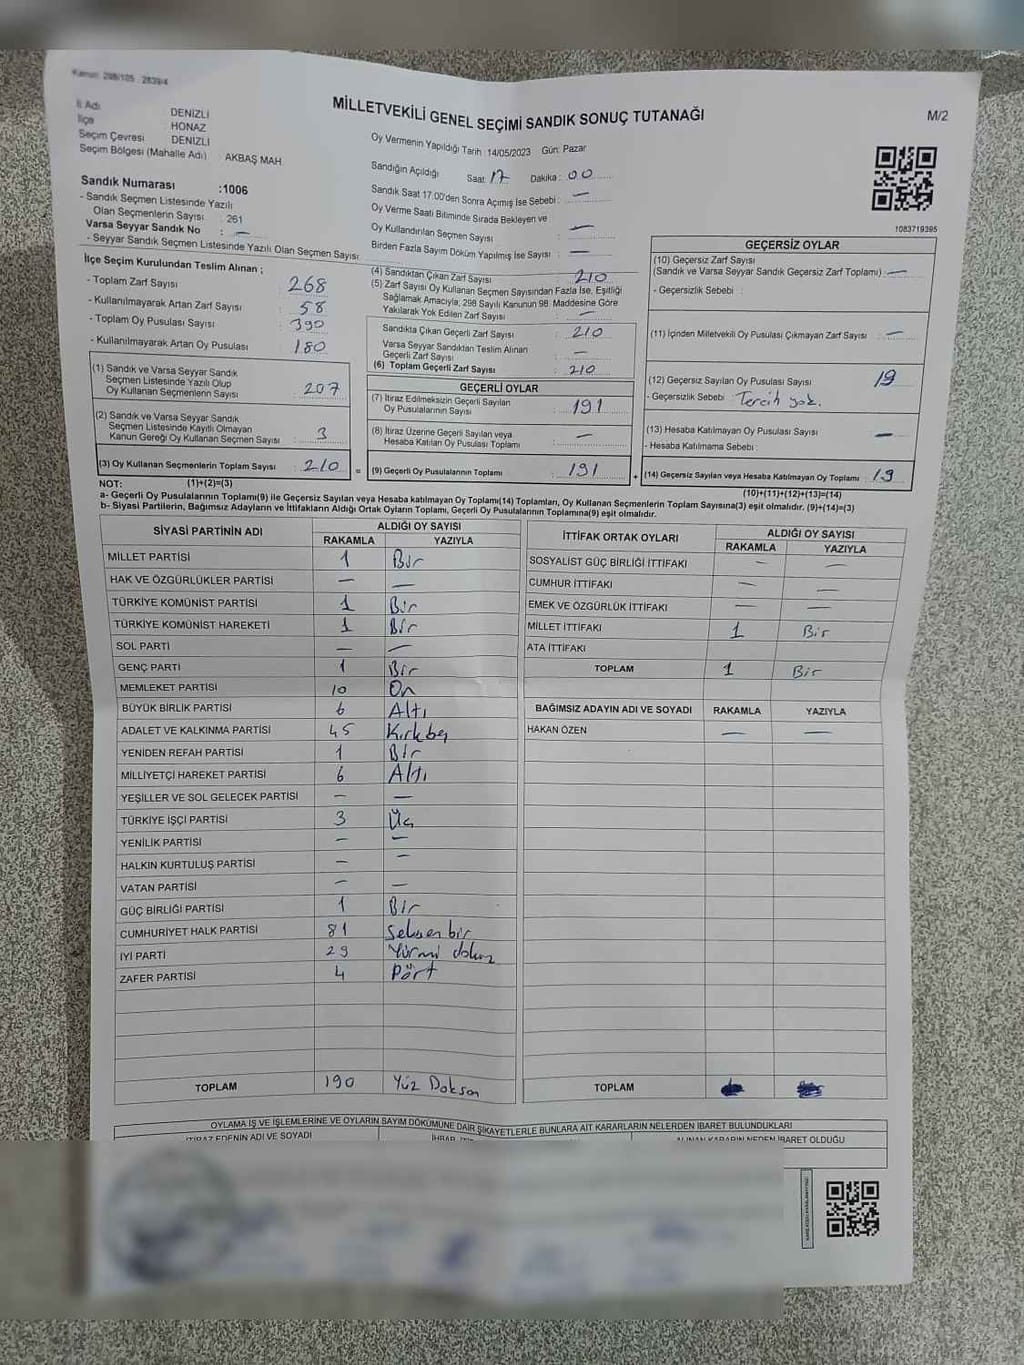 Kanun: 298/105 : 2839/4
MİLLETVEKİLİ GENEL SEÇİMİ SANDIK SONUÇ TUTANAĞI
M/2
İl Adı DENİZLİ
İlçe HONAZ
Seçim Çevresi DENİZLİ
Seçim Bölgesi (Mahalle Adı) : AKBAŞ MAH
Sandık Numarası :1006
- Sandık Seçmen Listesinde Yazılı
Olan Seçmenlerin Sayısı : 261
Varsa Seyyar Sandık No : —
- Seyyar Sandık Seçmen Listesinde Yazılı Olan Seçmen Sayısı
Oy Vermenin Yapıldığı Tarih :14/05/2023 Gün: Pazar
Sandığın Açıldığı Saat: 17 Dakika: 00
Sandık Saat 17.00'den Sonra Açımış İse Sebebi : —
Oy Verme Saati Bitiminde Sırada Bekleyen ve
Oy Kullandırılan Seçmen Sayısı : —
Birden Fazla Sayım Döküm Yapılmış İse Sayısı : —
1083719395
İlçe Seçim Kurulundan Teslim Alınan ;
- Toplam Zarf Sayısı : 268
- Kullanılmayarak Artan Zarf Sayısı : 58
- Toplam Oy Pusulası Sayısı : 390
- Kullanılmayarak Artan Oy Pusulası : 180
(1) Sandık ve Varsa Seyyar Sandık
Seçmen Listesinde Yazılı Olup
Oy Kullanan Seçmenlerin Sayısı : 207
(2) Sandık ve Varsa Seyyar Sandık
Seçmen Listesinde Kayıtlı Olmayan
Kanun Gereği Oy Kullanan Seçmen Sayısı : 3
(3) Oy Kullanan Seçmenlerin Toplam Sayısı : 210
(4) Sandıktan Çıkan Zarf Sayısı : 210
(5) Zarf Sayısı Oy Kullanan Seçmen Sayısından Fazla İse, Eşitliği
Sağlamak Amacıyla; 298 Sayılı Kanunun 98. Maddesine Göre
Yakılarak Yok Edilen Zarf Sayısı : —
Sandıkta Çıkan Geçerli Zarf Sayısı : 210
Varsa Seyyar Sandıktan Teslim Alınan
Geçerli Zarf Sayısı : —
(6) Toplam Geçerli Zarf Sayısı : 210
GEÇERLİ OYLAR
(7) İtiraz Edilmeksizin Geçerli Sayılan
Oy Pusulalarının Sayısı : 191
(8) İtiraz Üzerine Geçerli Sayılan veya
Hesaba Katılan Oy Pusulaları Toplamı : —
= (9) Geçerli Oy Pusulalarının Toplamı : 191
GEÇERSİZ OYLAR
(10) Geçersiz Zarf Sayısı
(Sandık ve Varsa Seyyar Sandık Geçersiz Zarf Toplamı) : —
- Geçersizlik Sebebi :
(11) İçinden Milletvekili Oy Pusulası Çıkmayan Zarf Sayısı : —
(12) Geçersiz Sayılan Oy Pusulası Sayısı : 19
- Geçersizlik Sebebi : Tercih yok.
(13) Hesaba Katılmayan Oy Pusulası Sayısı : —
- Hesaba Katılmama Sebebi :
+ (14) Geçersiz Sayılan veya Hesaba Katılmayan Oy Toplamı : 19
NOT: (1)+(2)=(3) (10)+(11)+(12)+(13)=(14)
a- Geçerli Oy Pusulalarının Toplamı(9) ile Geçersiz Sayılan veya Hesaba katılmayan Oy Toplamı(14) Toplamları, Oy Kullanan Seçmenlerin Toplam Sayısına(3) eşit olmalıdır. (9)+(14)=(3)
b- Siyasi Partilerin, Bağımsız Adayların ve İttifakların Aldığı Ortak Oyların Toplamı, Geçerli Oy Pusulalarının Toplamına(9) eşit olmalıdır.
SİYASİ PARTİNİN ADI ALDIĞI OY SAYISI
RAKAMLA YAZIYLA
MİLLET PARTİSİ 1 Bir
HAK VE ÖZGÜRLÜKLER PARTİSİ — —
TÜRKİYE KOMÜNİST PARTİSİ 1 Bir
TÜRKİYE KOMÜNİST HAREKETİ 1 Bir
SOL PARTİ — —
GENÇ PARTİ 1 Bir
MEMLEKET PARTİSİ 10 On
BÜYÜK BİRLİK PARTİSİ 6 Altı
ADALET VE KALKINMA PARTİSİ 45 Kırkbeş
YENİDEN REFAH PARTİSİ 1 Bir
MİLLİYETÇİ HAREKET PARTİSİ 6 Altı
YEŞİLLER VE SOL GELECEK PARTİSİ — —
TÜRKİYE İŞÇİ PARTİSİ 3 Üç
YENİLİK PARTİSİ — —
HALKIN KURTULUŞ PARTİSİ — —
VATAN PARTİSİ — —
GÜÇ BİRLİĞİ PARTİSİ 1 Bir
CUMHURİYET HALK PARTİSİ 81 Seksen bir
İYİ PARTİ 29 Yirmi dokuz
ZAFER PARTİSİ 4 Dört
TOPLAM 190 Yüz Doksan
İTTİFAK ORTAK OYLARI ALDIĞI OY SAYISI
RAKAMLA YAZIYLA
SOSYALİST GÜÇ BİRLİĞİ İTTİFAKI — —
CUMHUR İTTİFAKI — —
EMEK VE ÖZGÜRLÜK İTTİFAKI — —
MİLLET İTTİFAKI 1 Bir
ATA İTTİFAKI
TOPLAM 1 Bir
BAĞIMSIZ ADAYIN ADI VE SOYADI RAKAMLA YAZIYLA
HAKAN ÖZEN — —
TOPLAM
OYLAMA İŞ VE İŞLEMLERİNE VE OYLARIN SAYIM DÖKÜMÜNE DAİR ŞİKAYETLERLE BUNLARA AİT KARARLARIN NELERDEN İBARET BULUNDUKLARI
İTİRAZ EDENİN ADI VE SOYADI
ALINAN KARARIN NEDEN İBARET OLDUĞU